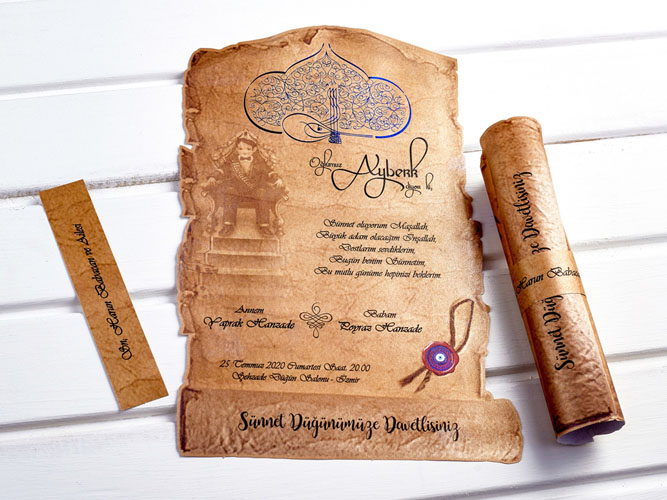 Oğlumuz
Ayberk
diyor ki,
Sünnet oluyorum Maşallah,
Büyük adam olacağım İnşallah,
Dostlarım sevdiklerim,
Bugün benim Sünnetim,
Bu mutlu günüme hepinizi beklerim.
Annem
Yaprak Hanzade
Babam
Poyraz Hanzade
25 Temmuz 2020 Cumartesi Saat. 20.00
Şehzade Düğün Salonu - İzmir
Sünnet Düğünümüze Davetlisiniz
Sn. Harun Babacan ve Ailesi
Sünnet Düğ
ze Davetlisiniz
Harun Babaca